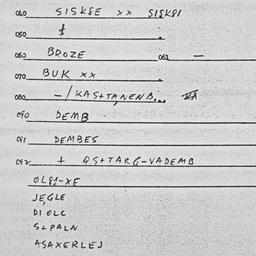 040 SISKEE xx SISKPI
050
060 BROZE 061 —
070 BUK xx
080 — / KAS+TANENB.
090 DEMB
091 DEMBES
092 + QS+TARG-VADEMB
JEGLE
DIOLC
S+PALN
ASAXERLEJ